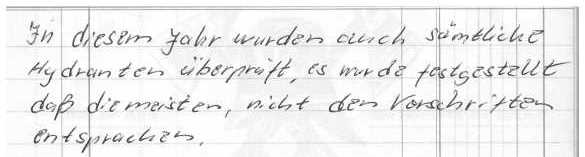 In diesem Jahr wurden auch sämtliche
Hydranten überprüft, es wurde festgestellt
daß die meisten, nicht den Vorschriften
entsprachen.